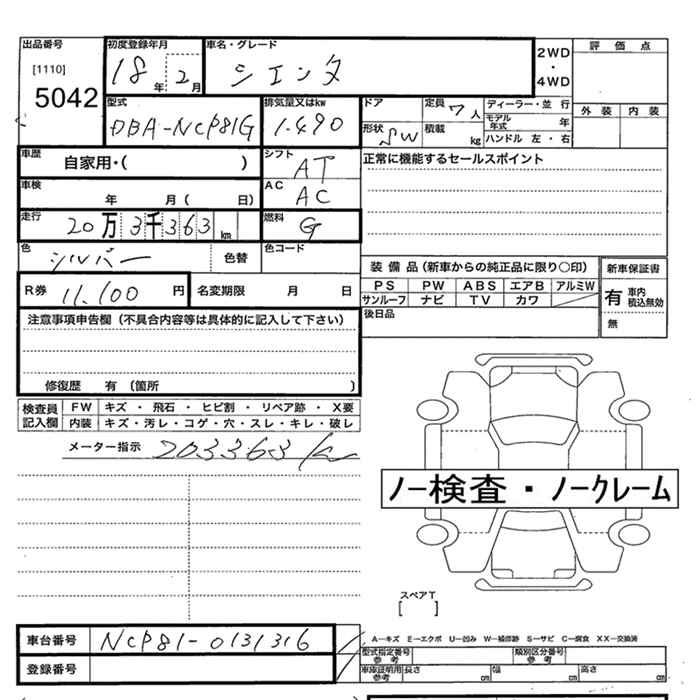 出品番号 初度登録年月 車名・グレード 2WD ・ 4WD 評価点
[1110] 5042 18年2月 シエンタ 外装 内装
型式 排気量又はkw ドア 定員 7人 ディーラー・並行
DBA-NCP81G 1.490 形状 SW 積載 kg モデル年式 年
ハンドル 左・右
車歴 自家用・( ) シフト AT 正常に機能するセールスポイント
車検 年 月( 日) AC AC
走行 20万3千363km 燃料 G
色 シルバー 色替 色コード
装備品(新車からの純正品に限り〇印) 新車保証書
R券 11,100円 名変期限 月 日
PS PW ABS エアB アルミW 有 車内積込無効
サンルーフ ナビ TV カワ
注意事項申告欄(不具合内容等は具体的に記入して下さい) 後日品 無
修復歴 有(箇所 )
検査員記入欄 FW キズ・飛石・ヒビ割・リペア跡・X要
内装 キズ・汚レ・コゲ・穴・スレ・キレ・破レ
メーター指示 203363km
ノー検査・ノークレーム
スペアT
[ ]
車台番号 NCP81-0131316
A-キズ E-エクボ U-凹み W-補修跡 S-サビ C-腐食 XX-交換済
型式指定番号 参考 類別区分番号 参考
登録番号 車庫証明用 参考 長さ cm 幅 cm 高さ cm